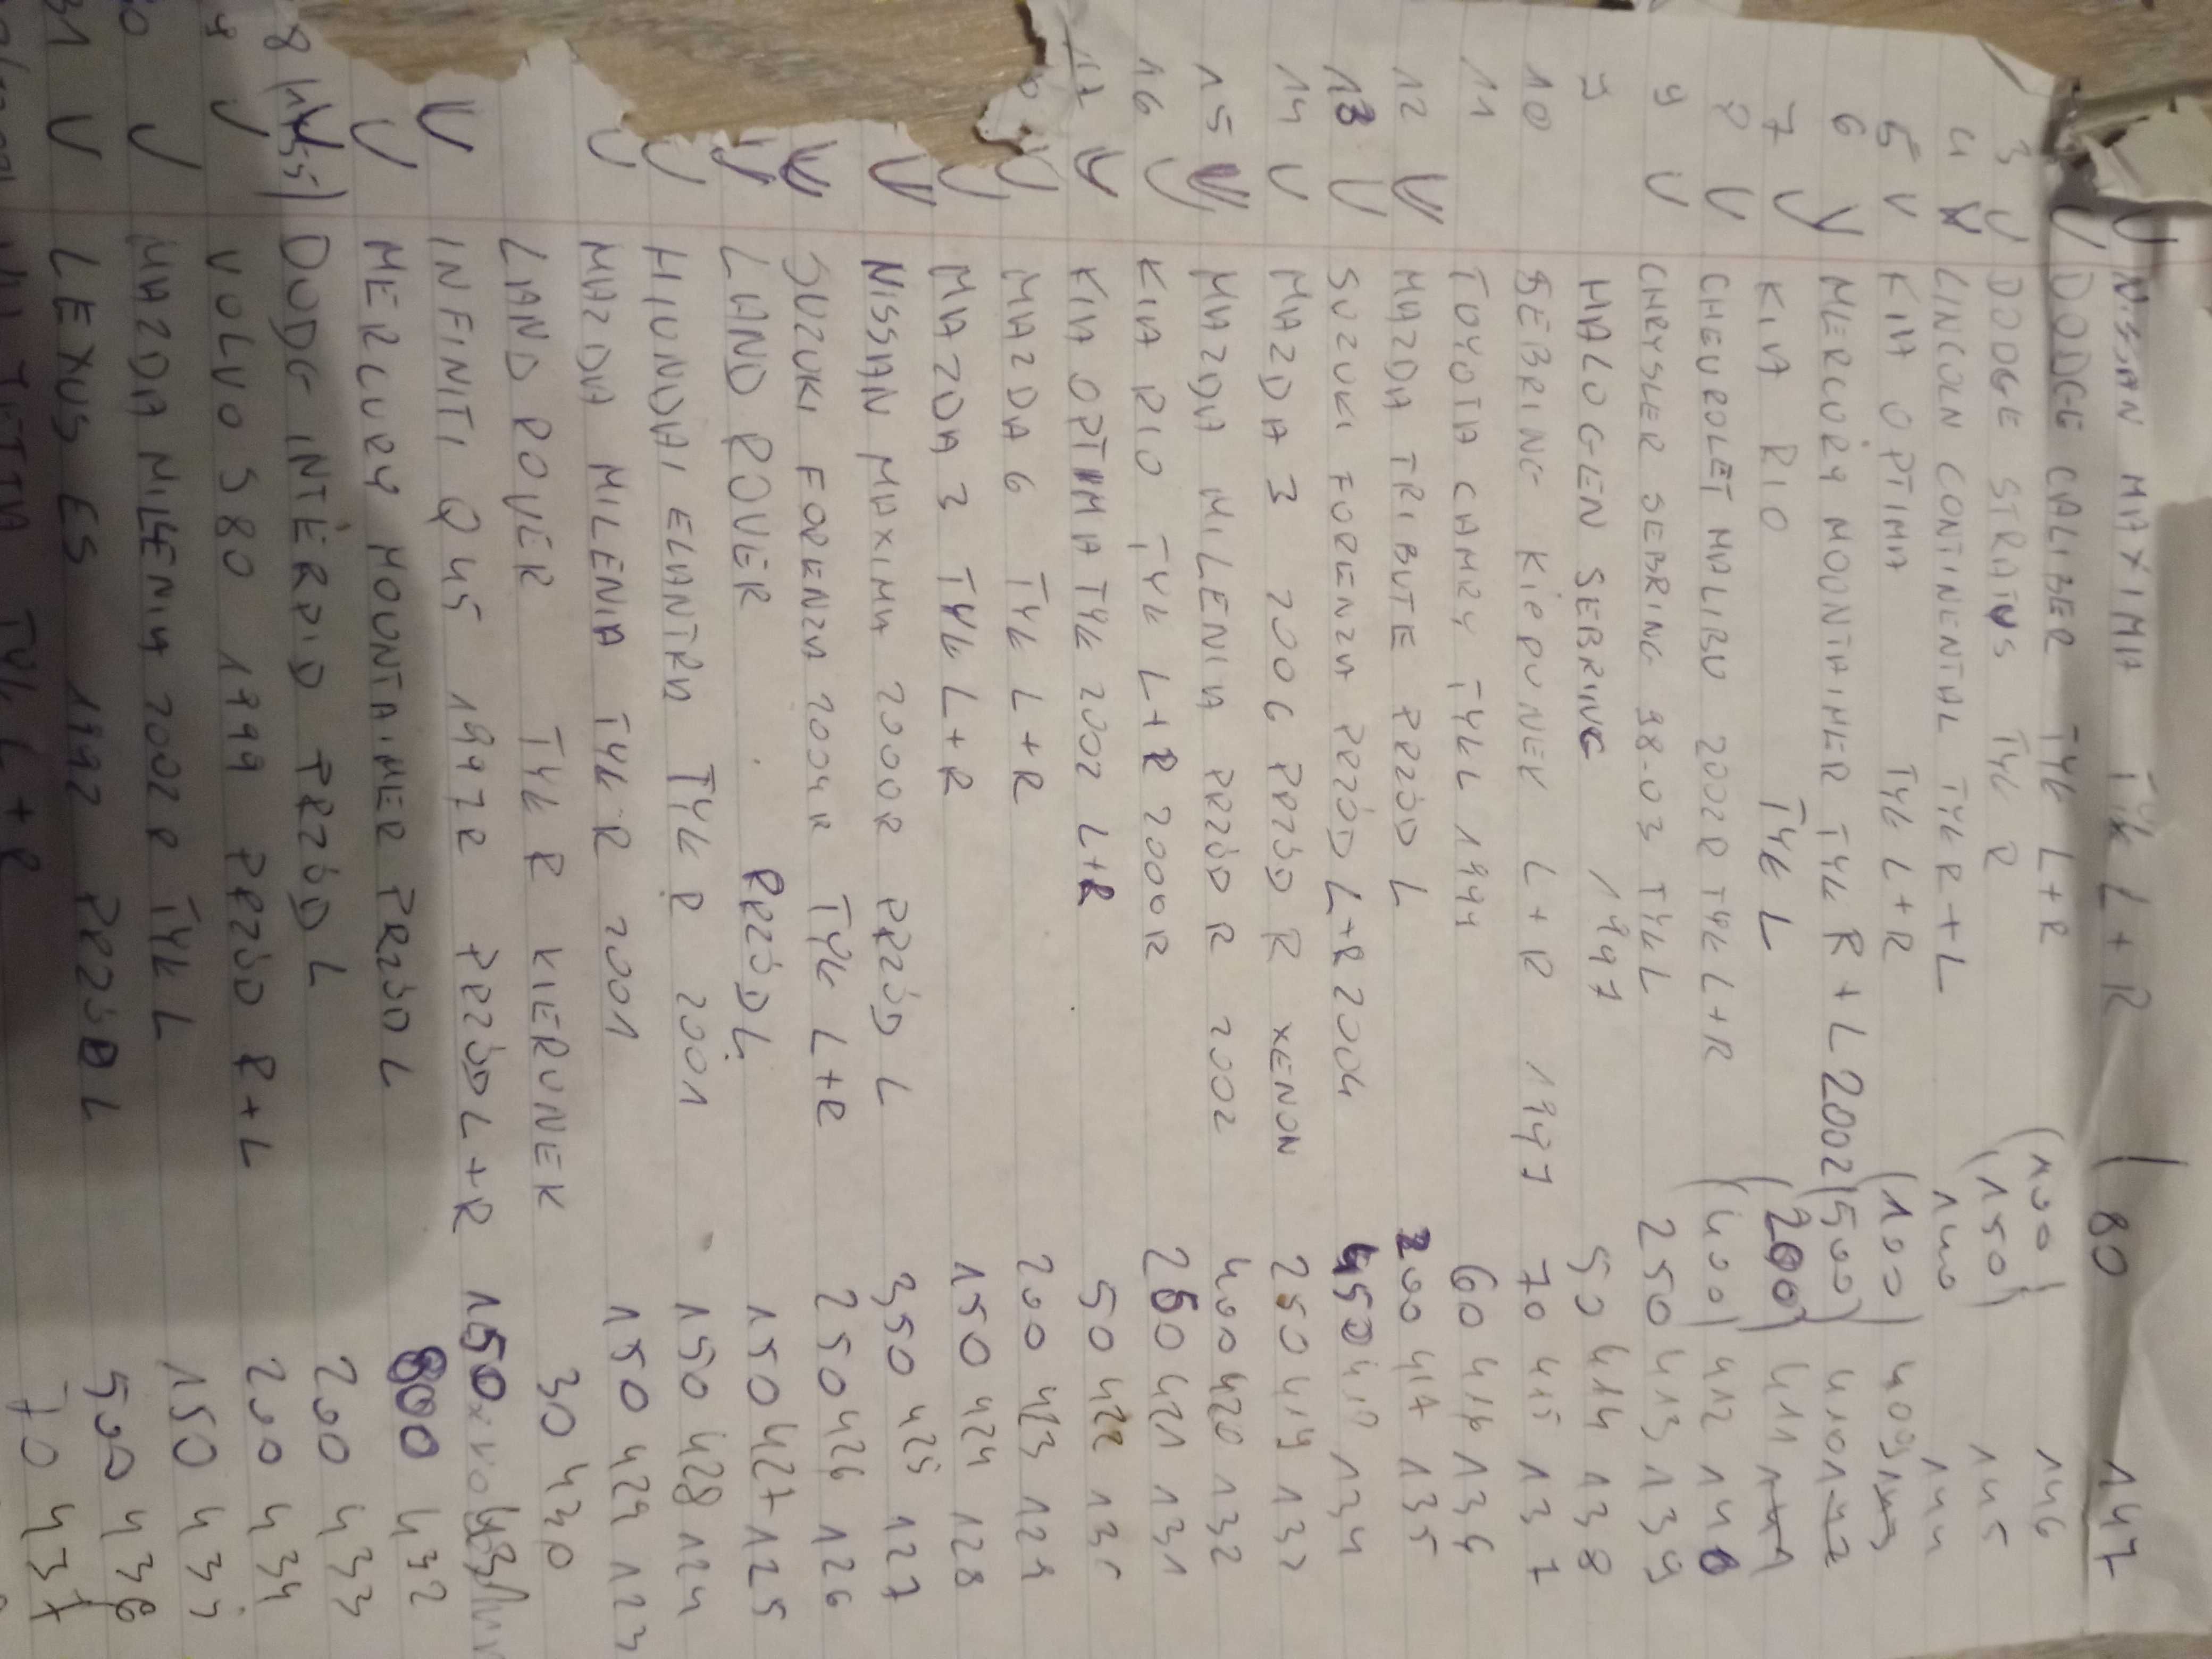 V NISSAN MAXIMA TYŁ L+R | 80 147
V DODGE CALIBER TYŁ L+R (100) 146
3 V DODGE STRATUS TYŁ R (150) 145
4 V LINCOLN CONTINENTAL TYŁ R+L 140 144
5 V KIA OPTIMA TYŁ L+R (100) 409 143
6 V MERCURY MOONTAINER TYŁ R+L 2002 (500) 410 142
7 V KIA RIO TYŁ L (200) 411 141
8 V CHEVROLET MALIBU 2002R TYŁ L+R (400) 412 140
9 V CHRYSLER SEBRING 98-03 TYŁ L 250 413 139
9 HALOGEN SEBRING 1997 50 414 138
10 SEBRING KIERUNEK L+R 1997 70 415 137
11 TOYOTA CAMRY TYŁ L 1999 60 416 136
12 V MAZDA TRIBUTE PRZÓD L 200 417 135
13 V SUZUKI FORENZA PRZÓD L+R 2004 450 418 134
14 V MAZDA 3 2006 PRZÓD R XENON 250 419 133
15 V MAZDA MILENIA PRZÓD R 2002 400 420 132
16 V KIA RIO TYŁ L+R 2000R 250 421 131
17 V KIA OPTIMA TYŁ 2002 L+R 50 422 130
V MAZDA 6 TYŁ L+R 200 423 129
V MAZDA 3 TYŁ L+R 150 424 128
V NISSAN MAXIMA 2000R PRZÓD L 350 425 127
V SUZUKI FORENZA 2004R TYŁ L+R 250 426 126
V LAND ROVER PRZÓD L 150 427 125
V HIUNDAI ELANTRA TYŁ R 2001 150 428 124
V MAZDA MILENIA TYŁ R 2001 150 429 123
LAND ROVER TYŁ R KIERUNEK 30 430
V INFINITI Q45 1997R PRZÓD L+R 150
V MERCURY MOUNTAINER PRZÓD L 800 432
V DODG INTERPID PRZÓD L 200 433
V VOLVO S80 1999 PRZÓD R+L 200 434
V MAZDA MILLENIA 2002R TYŁ L 150 435
31 V LEXUS ES 1992 PRZÓD L 500 436
JETTA TYŁ L+R 70 437